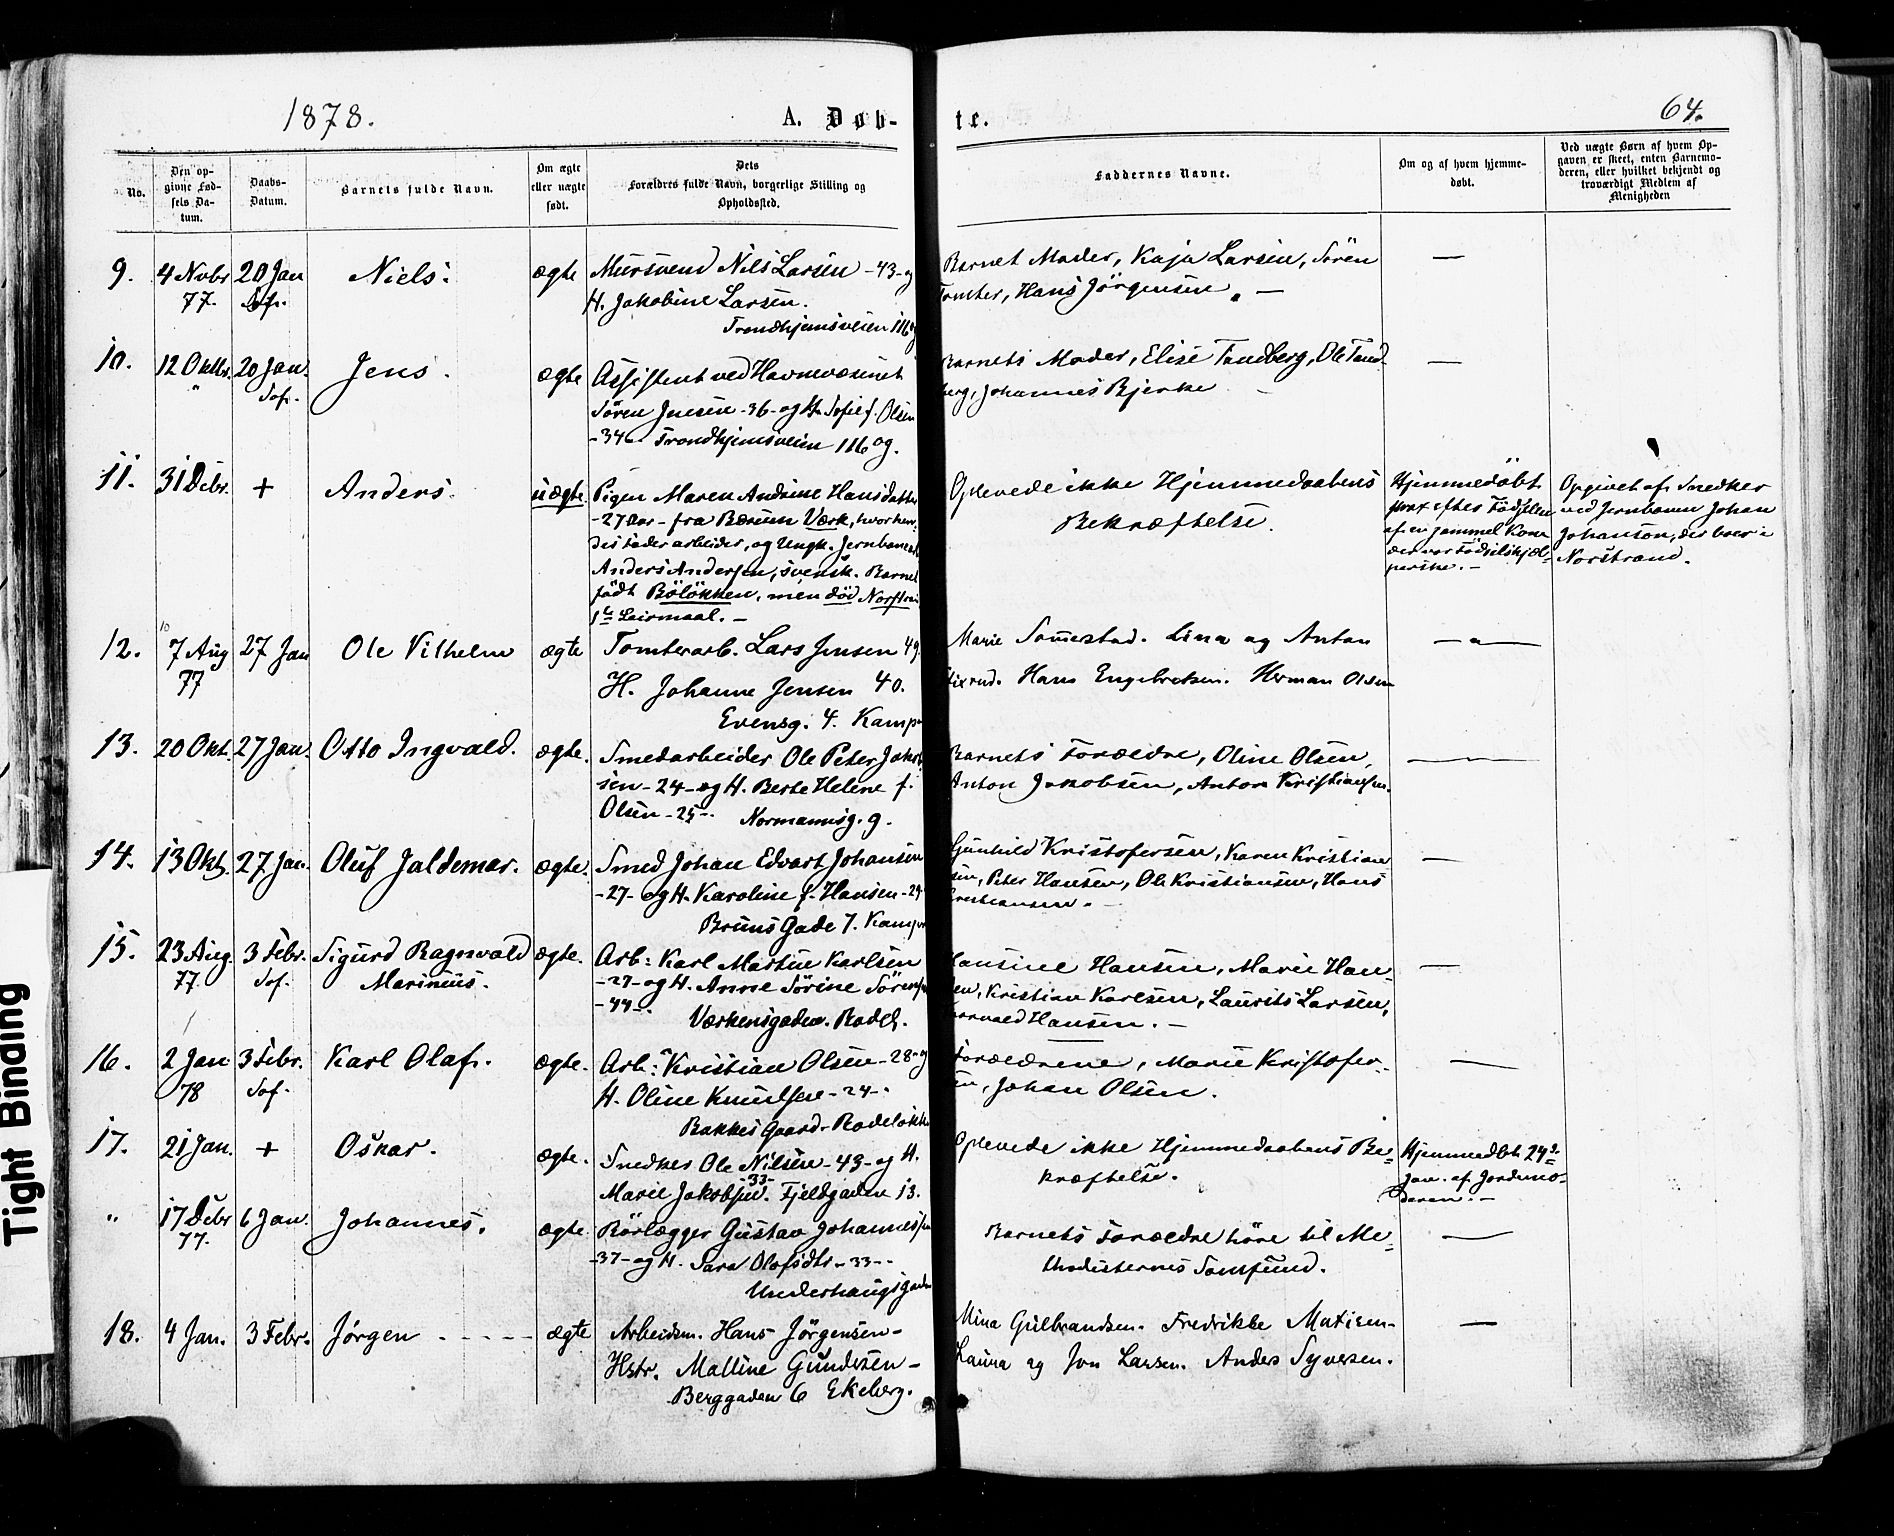 1878.
A. Døb-
te.
64.
No.
Den op-
givne Fød-
sels Da-
tum.
Daabs-
Datum.
Barnets fulde Navn.
Om ægte
eller uægte
født.
Dets
Forældres fulde Navn, borgerlige Stilling og
Opholdssted.
Faddernes Navne.
Om og af hvem hjemme-
døbt.
Ved uægte Børn af hvem Op-
gaven er skeet, enten Barnemo-
deren, eller hvilket bekjendt og
troværdigt Medlem af
Menigheden
9.
4 Novbr
77.
20 Jan
Sof.
Niels.
ægte
Mursvend Nils Larsen -43- og
H. Jakobine Larsen.
Trondhjemsveien 116 og
Barnet Moder, Kaja Larsen, Sören
Tomter, Hans Jörgensen. —
—
10.
12 Oktbr.
"
20 Jan.
Sof.
Jens.
ægte
Assistent ved Havnevæsenet
Sören Jensen -36- og H. Sofie f. Olsen
-34- Trondhjemsveien 116 og.
Barnets Moder, Elise Tandberg, Ole Tand
berg, Johannes Bjerke
—
11.
31 Debr.
+
Anders.
uægte.
Pigen Maren Andrine Hansdatter
-27 Aar- fra Bærum Værk, hvor hen-
des fader arbeider, og Ungk. Jernbanearb.
Anders Andersen, svensk. Barnet
født Böløkken, men död Norstran
1te Leirmaal. —
Oplevede ikke Hjemmedaabens
Bekræftelse.
Hjemmedöbt
strax efter Födselen
af en gammel Kone
der var Födselshjæl-
perske. —
Opgivet af Snedker
ved Jernbanen Johan
Johanson, der boer i
Norstrand.
12.
7 Aug
77
27 Jan
Ole Vilhelm
ægte
Tomterarb. Lars Jensen 49.
H. Johanne Jensen 40.
Evensg. 4. Kampn
Marie Sommerstad. Lina og Anton
Fixrud. Hans Engebretsen. Herman Olsen
—"—
13.
20 Okt.
27 Jan.
Otto Ingvald.
ægte.
Smedarbeider Ole Peter Jakob
sen -24- og H. Berte Helene f.
Olsen -25-. Normannsg. 9.
Barnets Forældre, Oline Olsen,
Anton Jakobsen, Anton Kristiansen.
—
14.
13 Okt.
27 Jan.
Oluf Jaldemar.
ægte.
Smed Johan Edvart Johansen
-27- og H. Karoline f. Hansen -29-
Bruns Gade 7. Kampn
Gunhild Kristofersen, Karen Kristian
sen, Peter Hansen, Ole Kristiansen, Hans
Kristiansen. —
—
15.
23 Aug.
77.
3 Febr.
Sof.
Sigurd Ragnvald
Marinius.
ægte.
Arb: Karl Martin Karlsen
-27- og H. Anne Sörine Sörensen
-44-.
Værkensgaden. Rodel.
Hansine Hansen, Marie Han-
sen, Kristian Karlsen, Laurits Larsen,
Torvald Hansen. —
—
16.
2 Jan
78
3 Febr.
Sof.
Karl Olaf.
ægte.
Arb: Kristian Olsen -28- og
H. Oline Knudsen -24-.
Bakkes Gaard. Rodeløkke
Forældrene, Marie Kristofer-
sen, Johan Olsen.
—
17.
21 Jan.
+
Oskar.
ægte.
Snedker Ole Nilsen -43- og H.
Marie Jakobsen -33-. Fjeldgaden 13.
Oplevede ikke Hjemmedaabens Be-
kræftelse.
Hjemmedöbt 24de
Jan. af Jordemo-
deren. —
"
17 Debr
77.
6 Jan.
Johannes.
ægte.
Rörlægger Gustav Johannessen
-37- og H. Sara Olofsdtr -33-.
Underhaugsgaden
Barnets Forældre höre til Me-
thodisternes Samfund.
—
18.
4 Jan.
3 Febr.
Jørgen - - - - -
ægte
Arbeidsm. Hans Jörgensen -
Hstr. Malline Gundesen -
Berggaden 6 Ekeberg.
Mina Gulbrandsen. Fredrikke Matisen.
Laura og Jon Larsen. Anders Syversen.
—
Tight Binding